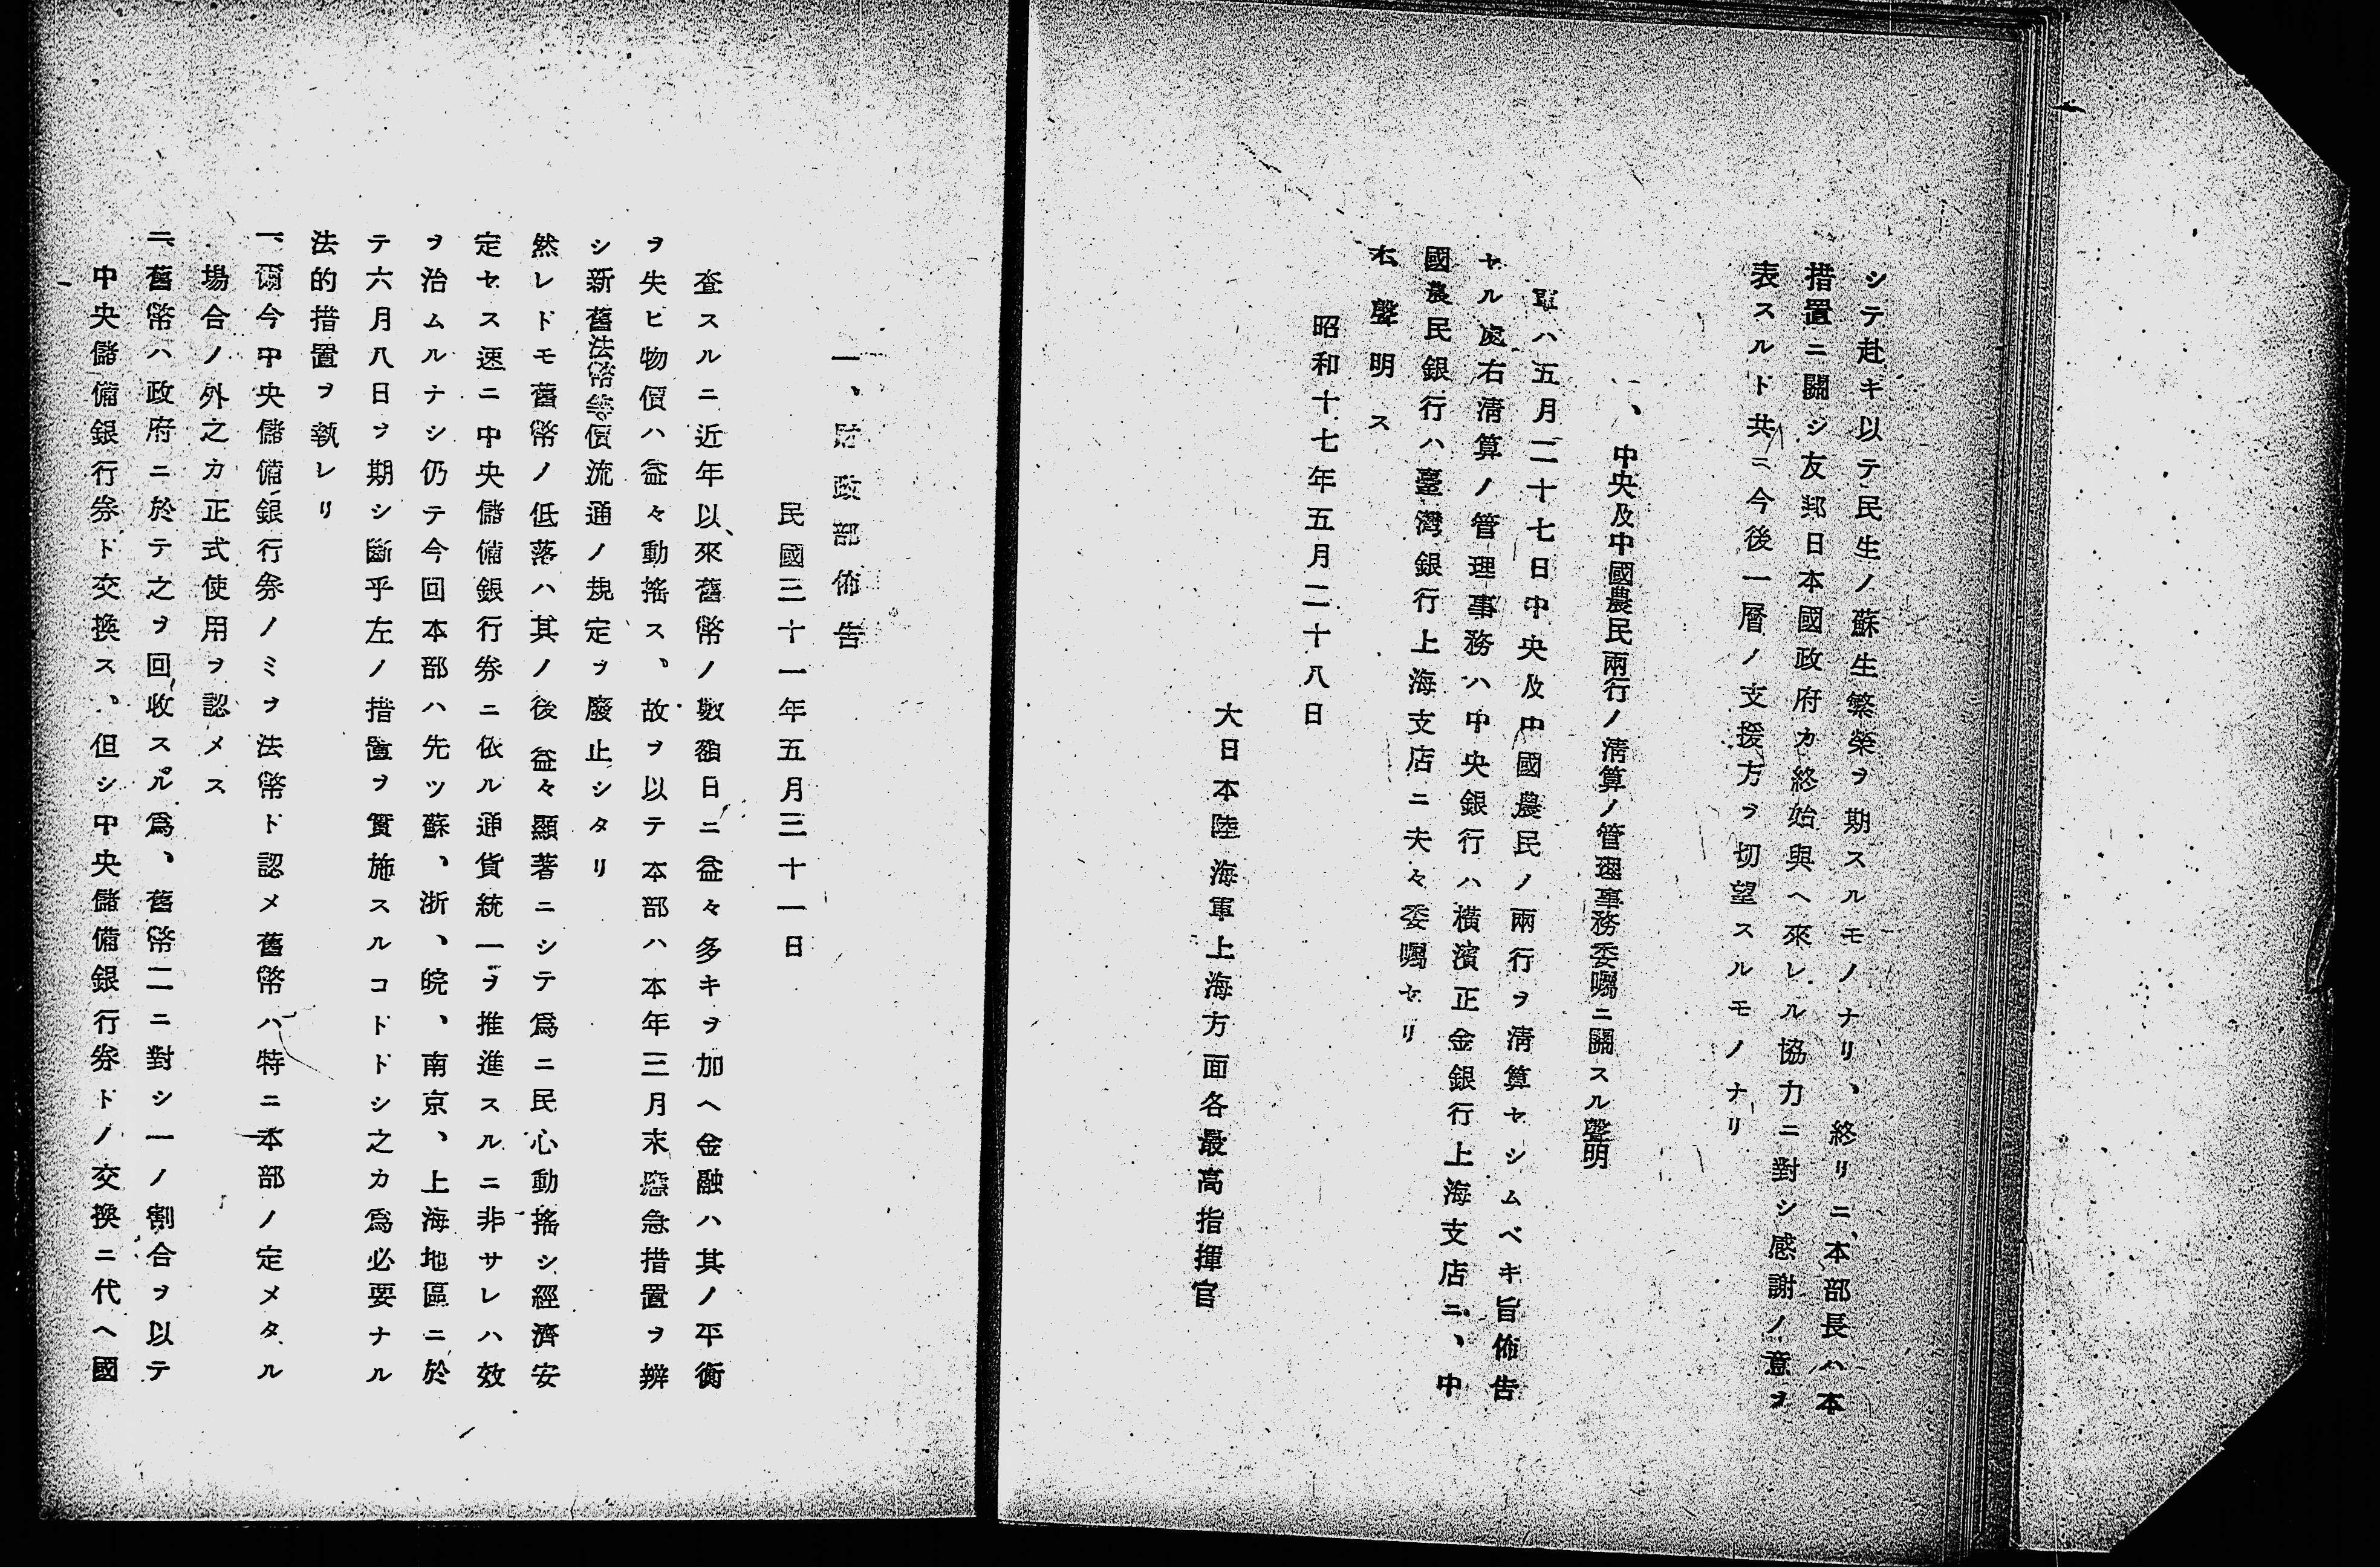 シテ赴キ以テ民生ノ蘇生繁榮ヲ期スルモノナリ、終リニ本部長ハ本
措置ニ關シ友邦日本國政府カ終始與ヘ來レル協力ニ對シ感謝ノ意ヲ
表スルト共ニ今後一層ノ支援方ヲ切望スルモノナリ
一、中央及中國農民兩行ノ清算ノ管理事務委囑ニ關スル聲明
軍ハ五月二十七日中央及中國農民ノ兩行ヲ清算セシムベキ旨佈告
セル處右清算ノ管理事務ハ中央銀行ハ橫濱正金銀行上海支店ニ、中
國農民銀行ハ臺灣銀行上海支店ニ夫々委囑セリ
右聲明ス
昭和十七年五月二十八日
大日本陸海軍上海方面各最高指揮官
一、財政部佈告
民國三十一年五月三十一日
查スルニ近年以來舊幣ノ數額日ニ益々多キヲ加ヘ金融ハ其ノ平衡
ヲ失ヒ物價ハ益々動搖ス、故ヲ以テ本部ハ本年三月末應急措置ヲ辨
シ新舊法幣等價流通ノ規定ヲ廢止シタリ
然レドモ舊幣ノ低落ハ其ノ後益々顯著ニシテ爲ニ民心動搖シ經濟安
定セス速ニ中央儲備銀行券ニ依ル通貨統一ヲ推進スルニ非サレハ效
ヲ治ムルナシ仍テ今回本部ハ先ツ蘇、浙、皖、南京、上海地區ニ於
テ六月八日ヲ期シ斷乎左ノ措置ヲ實施スルコトトシ之カ爲必要ナル
法的措置ヲ執レリ
一、爾今中央儲備銀行券ノミヲ法幣ト認メ舊幣ハ特ニ本部ノ定メタル
場合ノ外之カ正式使用ヲ認メス
二、舊幣ハ政府ニ於テ之ヲ回收スル爲、舊幣二ニ對シ一ノ割合ヲ以テ
中央儲備銀行券ト交換ス、但シ中央儲備銀行券トノ交換ニ代ヘ國